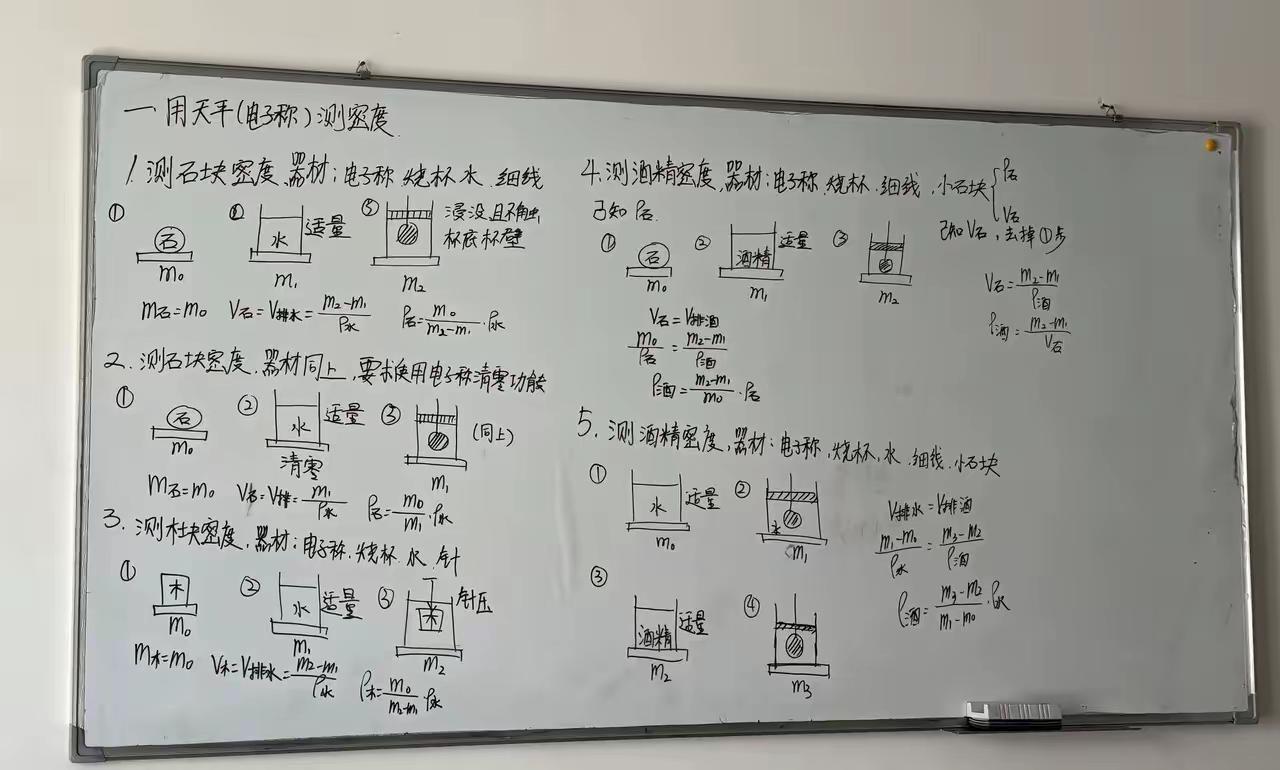 一 用天平(电子称)测密度.
1. 测石块密度, 器材:电子称 烧杯 水 细线
① ② ③ 浸没且不触
石 水 适量 杯底杯壁
m₀ m₁ m₂
m石=m₀ V石=V排水=(m₂-m₁)/ρ水 ρ石=m₀/(m₂-m₁)·ρ水
2. 测石块密度, 器材同上, 要求使用电子称清零功能
① ② 适量 ③ (同上)
石 水
m₀ 清零 m₁
m石=m₀ V石=V排=m₁/ρ水 ρ石=m₀/m₁·ρ水
3. 测木块密度, 器材:电子称. 烧杯. 水. 针
① ② ③ 针压
木 水 适量 木
m₀ m₁ m₂
m木=m₀ V木=V排水=(m₂-m₁)/ρ水 ρ木=m₀/(m₂-m₁)·ρ水
4. 测酒精密度, 器材:电子称, 烧杯. 细线. 小石块 { ρ石 V石
已知ρ石. 已知V石, 去掉①步
① ② 适量 ③
石 酒精
m₀ m₁ m₂
V石=V排酒
m₀/ρ石=(m₂-m₁)/ρ酒
ρ酒=(m₂-m₁)/m₀·ρ石
V石=(m₂-m₁)/ρ酒
ρ酒=(m₂-m₁)/V石
5. 测酒精密度, 器材:电子称, 烧杯, 水. 细线. 小石块
① 水 适量 ② 水
m₀ m₁
③ 酒精 适量 ④
m₂ m₃
V排水=V排酒
(m₁-m₀)/ρ水=(m₃-m₂)/ρ酒
ρ酒=(m₃-m₂)/(m₁-m₀)·ρ水